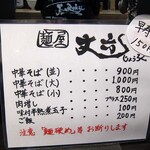 麺屋 丈六
中華そば(並) 900円
中華そば(大) 1,000円
中華そば(小) 800円
肉増し プラス 250円
味付半熟煮玉子 100円
ご飯 200円
注意 「麺硬め」等 お断りします